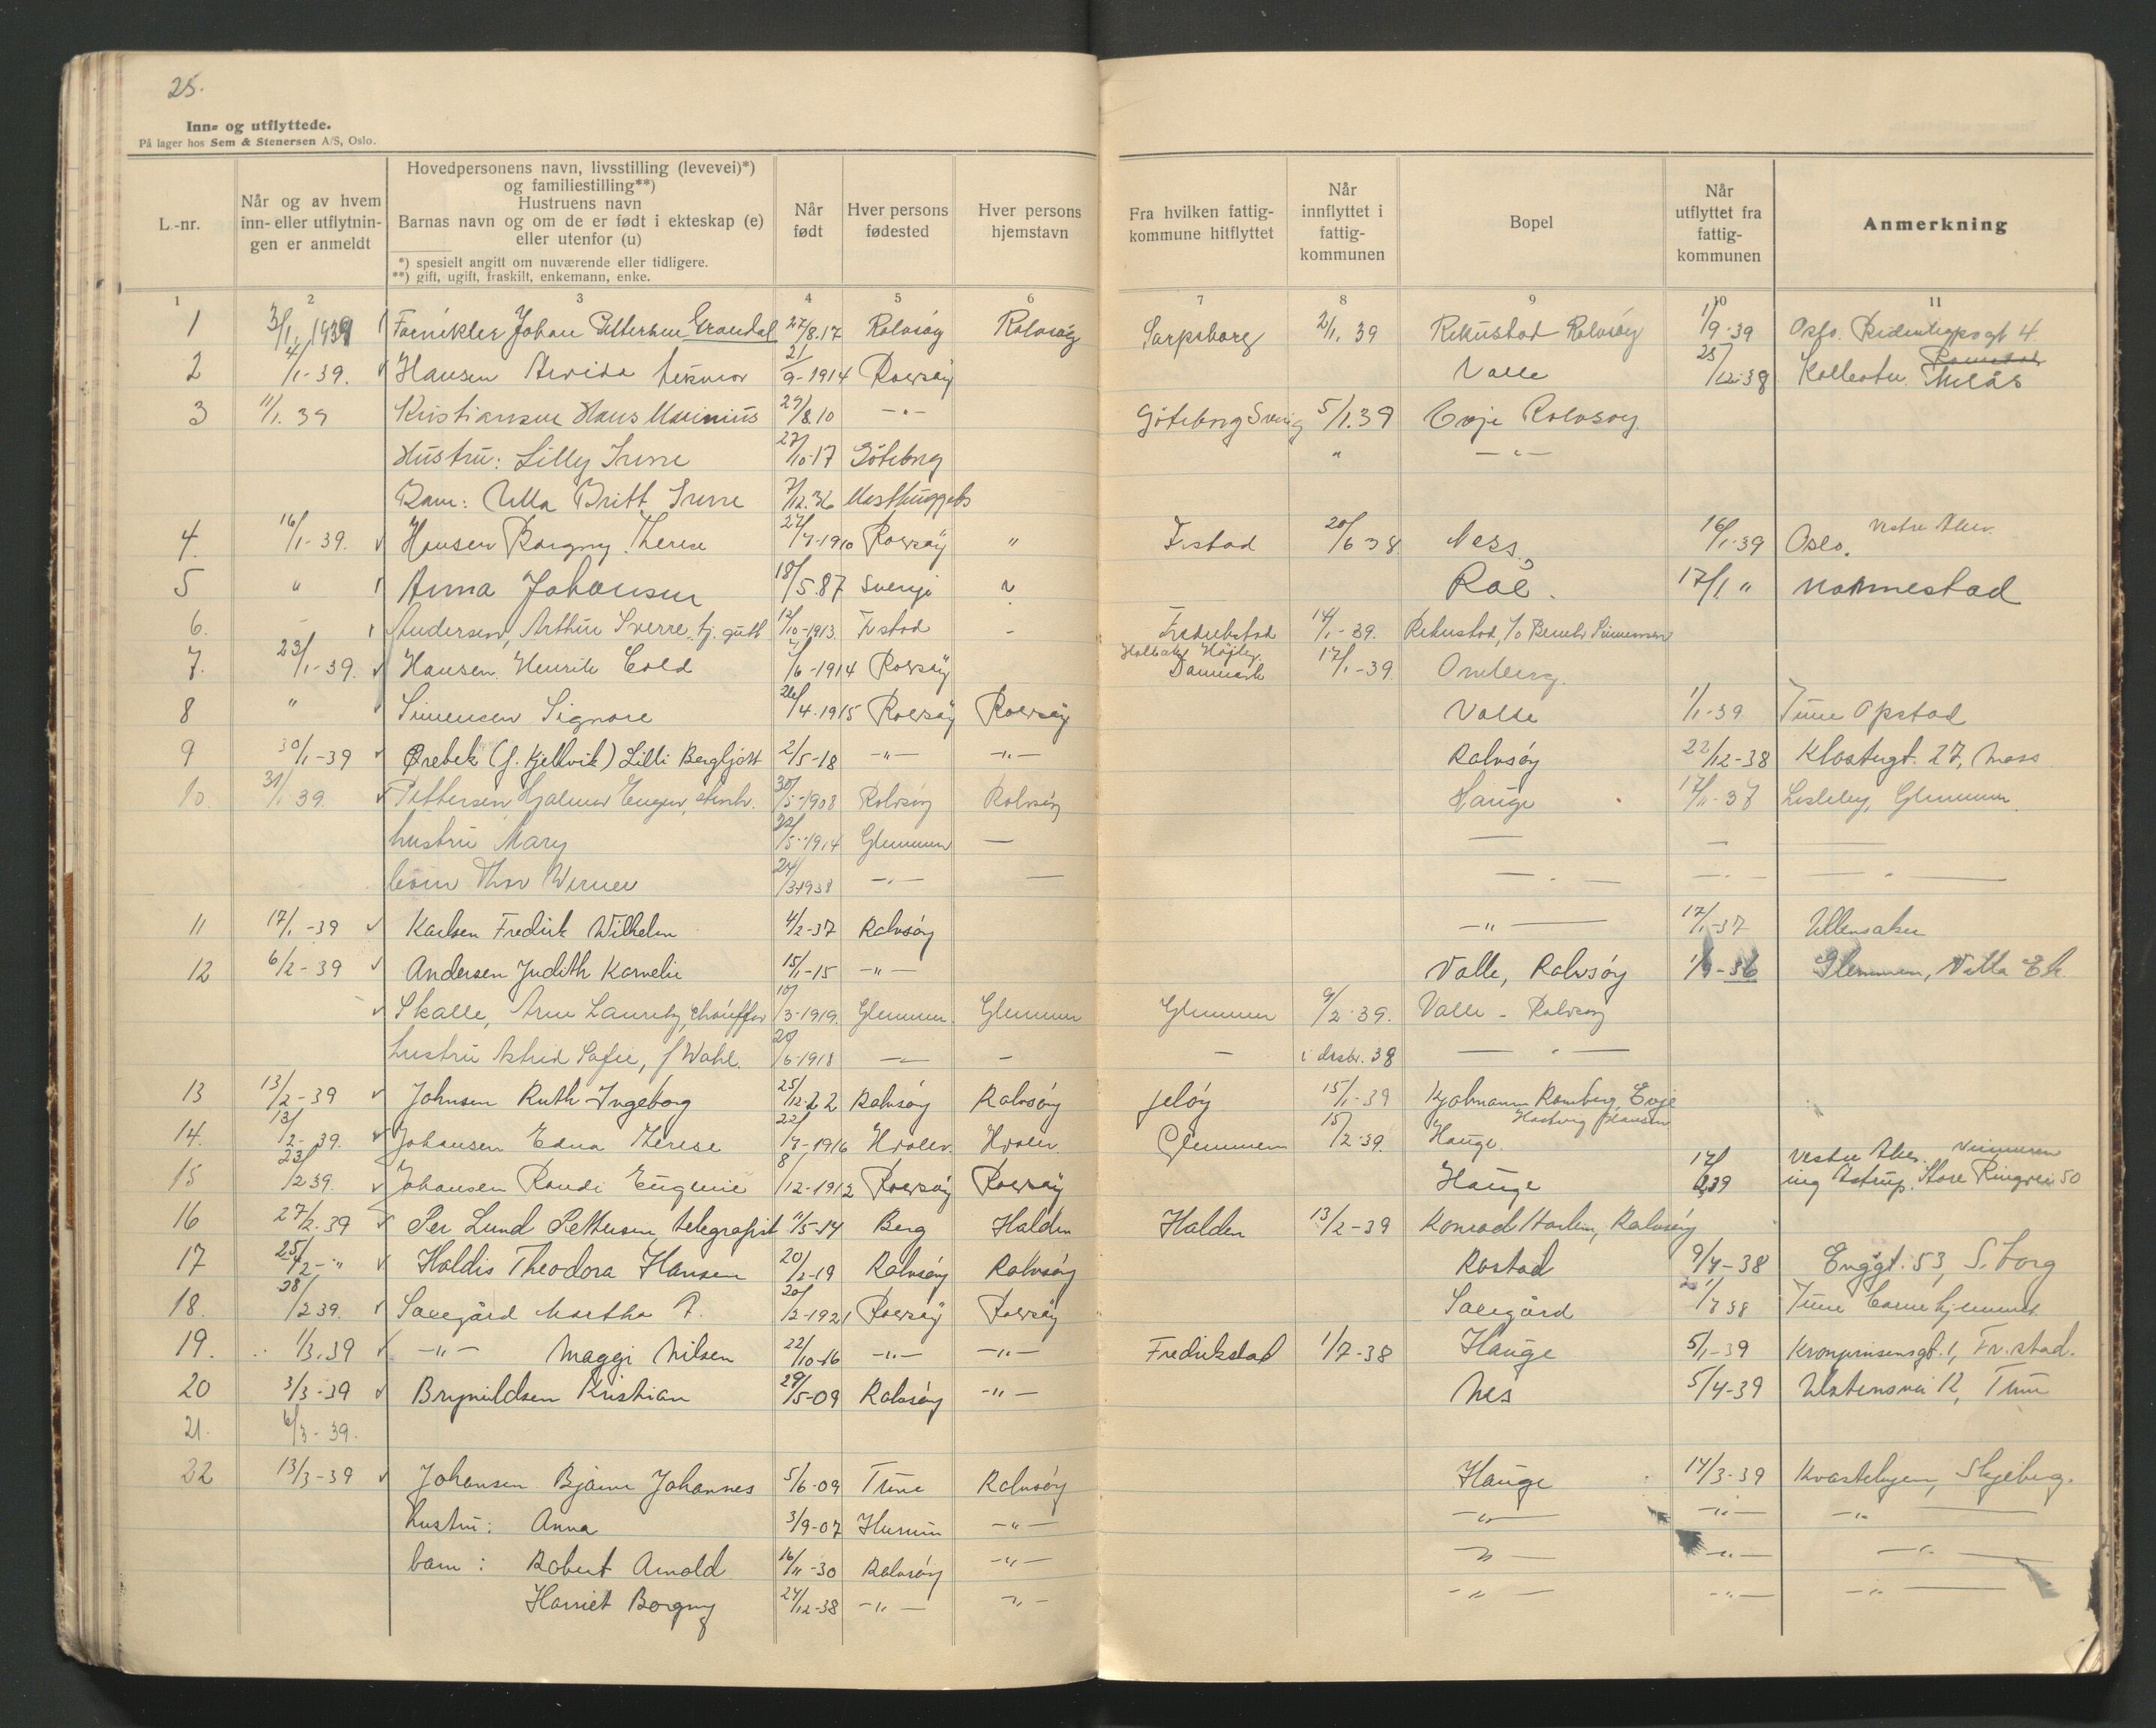 25.
Inn- og utflyttede.
På lager hos Sem & Stenersen A/S, Oslo.
L.-nr.
Når og av hvem inn- eller utflytnin-gen er anmeldt
Hovedpersonens navn, livsstilling (levevei)*)
og familiestilling**)
Hustruens navn
Barnas navn og om de er født i ekteskap (e)
eller utenfor (u)
*) spesielt angitt om nuværende eller tidligere.
**) gift, ugift, fraskilt, enkemann, enke.
Når født
Hver persons fødested
Hver persons hjemstavn
Fra hvilken fattig-kommune hitflyttet
Når innflyttet i fattig-kommunen
Bopel
Når utflyttet fra fattig-kommunen
Anmerkning
1 2 3 4 5 6 7 8 9 10 11
1 3/1. 1939 Johan Pettersen Grandal 27/8.17 Rolvsøy Rolvsøy Sarpsborg 2/1. 39 Rekustad Rolvsøy 1/9-39 Oslo. 4.
2 4/1-39. Hansen Arvida 21/9-1914 Rolvsøy Valle 25/12-38
3 11/1. 39 Kristiansen Hans Marinius 29/8.10 -"- Göteborg Sverig 5/1.39 Evje Rolvsøy
Hustru: Lilly Irene 27/10-17 Göteborg " -"-
Barn: Ulla Britt Irene 7/12.36 Masthuggets
4. 16/1-39. Hansen Borgny Therese 27/7-1910 Rolvsøy " Fr.stad 20/6 38 Ness. 16/1-39 Oslo. Vestre Aker.
5 " Anna Johansen 18/5.87 Sverige Roe. 17/1 " Mannestad
6. Andersen, Arthur Sverre, tj. gutt 12/10-1913. Fr.stad - Fredrikstad 14/1-39. Rekustad, c/o
7. 23/1-39. Hansen Henrik Eold 7/6-1914 Rolvsøy Danmark 17/1-39 Omberg.
8 " Simensen Signore 26/4-1915 Rolvsøy Rolvsøy Valle 1/1-39 Tune Opstad
9 30/1-39 Ørebek (f. Kjellvik) Lilli Bergljot 2/5-18 -"- -"- Rolvsøy 22/12-38 Klostergt. 27, Moss
10. 31/1 39. Pettersen Hjalmar Eugen, stenh. 30/5-1908 Rolvsøy Rolvsøy Hauge 17/11-37 Lisleby, Glemmen.
hustru Mary 22/5-1914 Glemmen —
barn Thor Werner 24/3-1938 -"- —
11 17/1-39 Karlsen Fredrik Wilhelm 4/2-37 Rolvsøy -"- 17/1-37 Ullensaker
12 6/2-39 Andersen Judith Kornelie 15/1-15 -"- Valle, Rolvsøy 1/9-36 Glemmen, Villa Ek.
Skalle, Arne Lauritz, chauffør 10/3-1919. Glemmen. Glemmen Glemmen 9/2-39. Valle - Rolvsøy
hustru Astrid Sofie, f. Wahl. 20/6-1918 -"- - - i desbr. 38 -"-
13 13/2-39 Johnsen Ruth Ingeborg 25/12-22 Rolvsøy Rolvsøy Jeløy 15/1-39 Hjalmann Romberg Evje
14. 13/2-39. Johansen Edna Therese 22/7-1916 Hvaler. Hvaler Glemmen 15/2-39. Hauge. Hartvig Hansen
15 23/2 39. Johansen Randi Eugenie 8/12-1912 Rolvsøy Rolvsøy Hauge 17/2 39 Vestre Aker. Vinneren ing Astrup. Store Ringvei 50
16 27/2. 39 Per Lund Pettersen, telegrafist 11/5-14 Berg Halden Halden 13/2-39 Konrad Holm, Rolvsøy
17 25/2-" Haldis Theodora Hansen 20/2-19 Rolvsøy Rolvsøy Rostad 9/4-38 Enggt. 53, S.borg
18. 28/2 39. Solegård Martha P. 20/2-1921 Rolvsøy Rolvsøy Solegård 1/7 38 Tune barnehjemmet.
19. 1/3.39 -"- Maggi Nilsen 22/10-16 -"- -"- Fredrikstad 1/7-38 Hauge 5/1-39 Kronprinsensgt. 1, Fr.stad.
20 3/3-39 Brynildsen Kristian 29/5-09 Rolvsøy -"- Nes 5/4-39 Tune
21. 6/3-39.
22 13/3-39 Johansen Bjarne Johannes 5/6-09 Tune Rolvsøy Hauge 14/3-39 Skjeberg.
hustru: Anna 3/9-07 Hurum -"- -"- -"- -"-
barn: Robert Arnold 16/11-30 Rolvsøy -"- -"- -"- -"-
Harriet Borgny 24/12-38 -"- -"- -"- -"- -"-